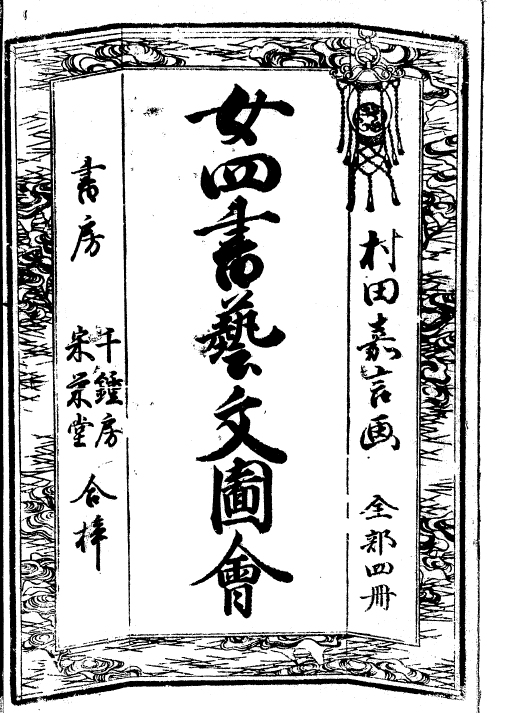 村田嘉言画 全部四冊
女四書藝文圖會
書房
千鍾房
宋栄堂
合梓